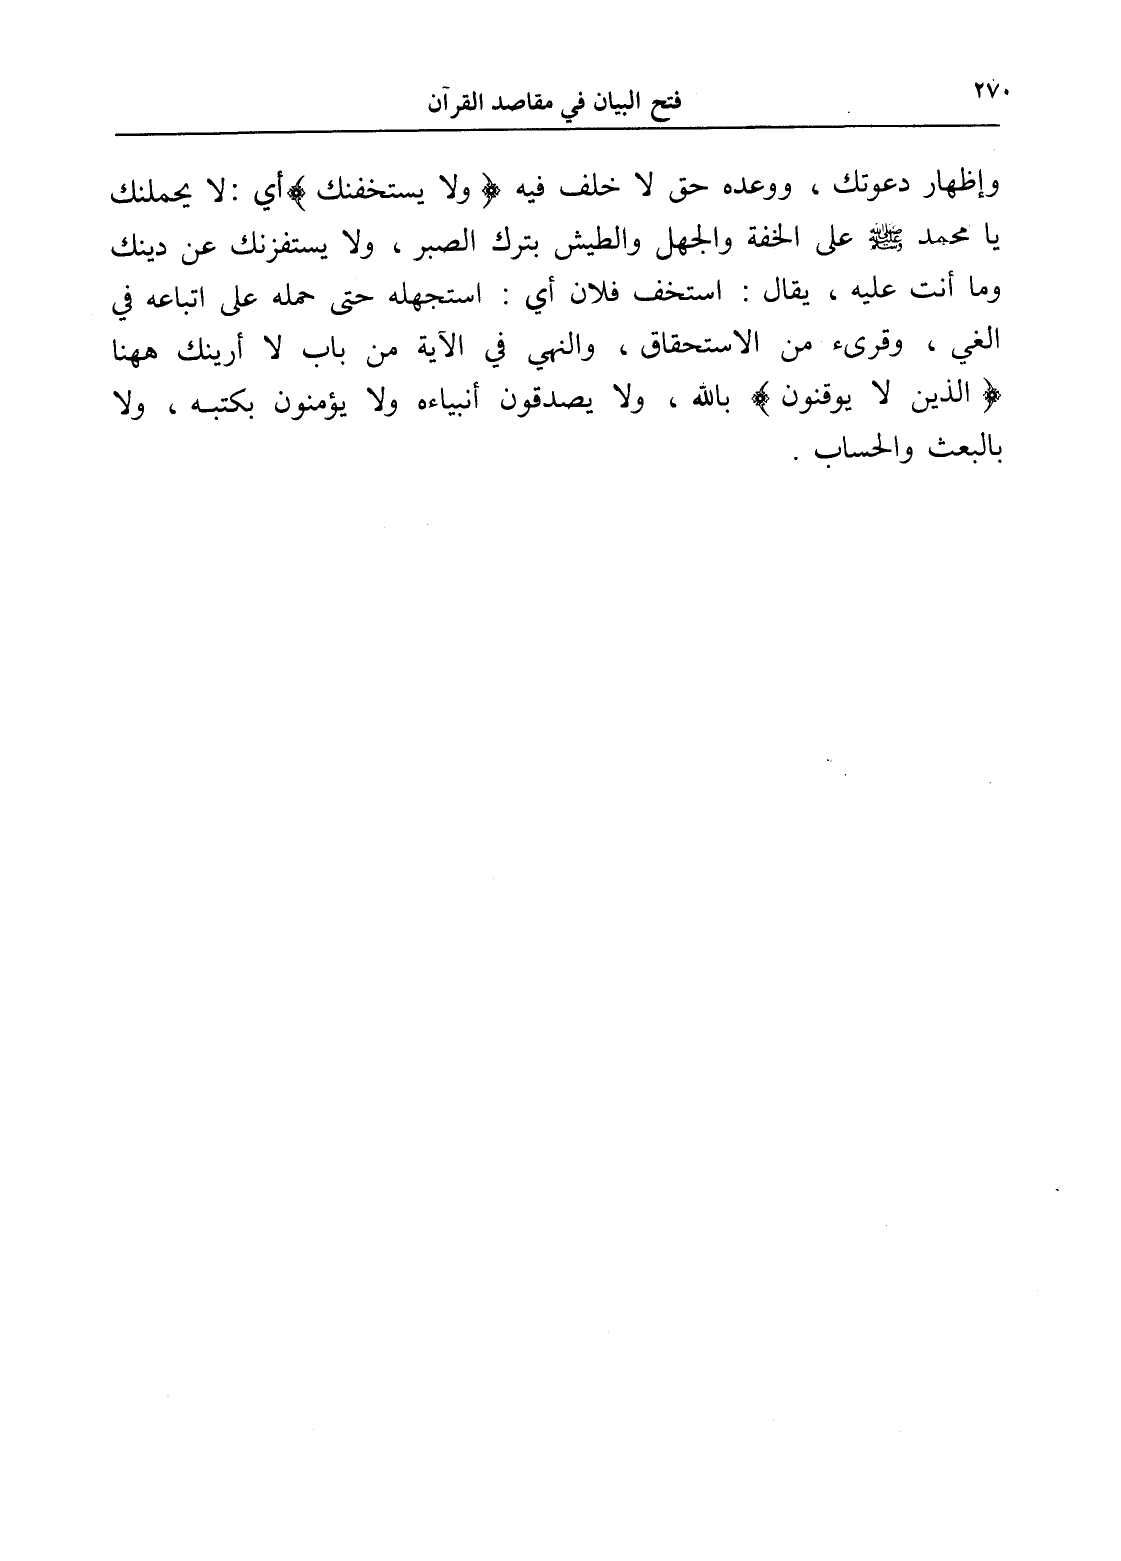 ٢٧٠
فتح البيان في مقاصد القرآن
وإظهار دعوتك ، ووعده حق لا خلف فيه ﴿ ولا يستخفنك ﴾أي :لا يحملنك
يا محمد ﷺ على الخفة والجهل والطيش بترك الصبر ، ولا يستفزنك عن دينك
وما أنت عليه ، يقال : استخف فلان أي : استجهله حتى حمله على اتباعه في
الغي ، وقرىء من الاستحقاق ، والنهي في الآية من باب لا أرينك ههنا
﴿ الذين لا يوقنون ﴾ بالله ، ولا يصدقون أنبياءه ولا يؤمنون بكتبه ، ولا
بالبعث والحساب .